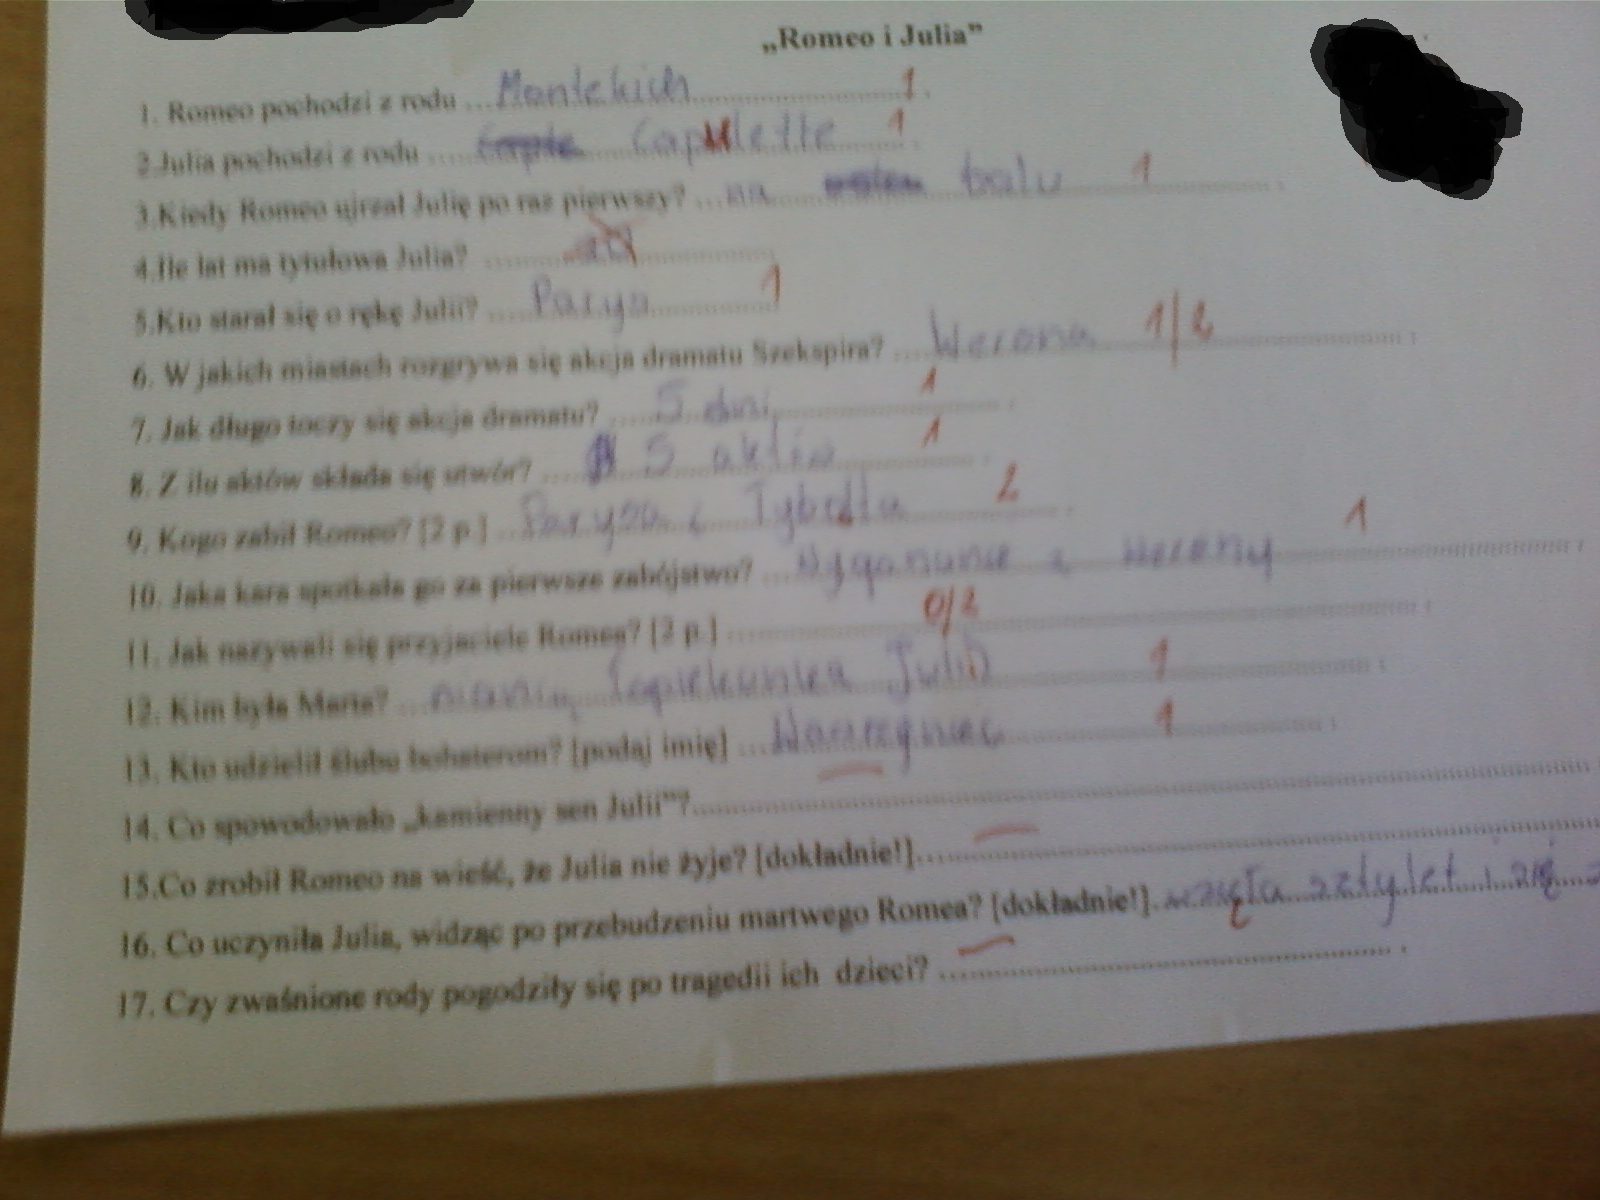 „Romeo i Julia”
1. Romeo pochodzi z rodu ... Montekich ... 1
2.Julia pochodzi z rodu .... Capulette 1
3.Kiedy Romeo ujrzał Julię po raz pierwszy? ... na balu 1
4.Ile lat ma tytułowa Julia? ...
5.Kto starał się o rękę Julii? .... Parys ... 1
6. W jakich miastach rozgrywa się akcja dramatu Szekspira? .... Werona 1/2
7. Jak długo toczy się akcja dramatu? .... 5 dni 1
8. Z ilu aktów składa się utwór? .... 5 aktów 1
9. Kogo zabił Romeo? [2 p.] ... Parysa i Tybalta 2
10. Jaka kara spotkała go za pierwsze zabójstwo? ... Wygnanie z Werony 1
11. Jak nazywali się przyjaciele Romea? [2 p.] ... 0/2
12. Kim była Marta? ... nianią (opiekunka Julii) 1
13. Kto udzielił ślubu bohaterom? [podaj imię] ... Wawrzyniec 1
14. Co spowodowało „kamienny sen Julii”?...
15.Co zrobił Romeo na wieść, że Julia nie żyje? [dokładnie!]...
16. Co uczyniła Julia, widząc po przebudzeniu martwego Romea? [dokładnie!]. wzięła sztylet i się
17. Czy zwaśnione rody pogodziły się po tragedii ich dzieci? ...